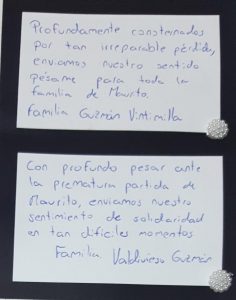 Profundamente consternados
por tan irreparable pérdida,
enviamos nuestro sentido
pésame para toda la
familia de Maurito.
Familia Guzmán Vintimilla
Con profundo pesar ante
la prematura partida de
Maurito, enviamos nuestro
sentimiento de solidaridad
en tan difíciles momentos
Familia Valdivieso Guzmán